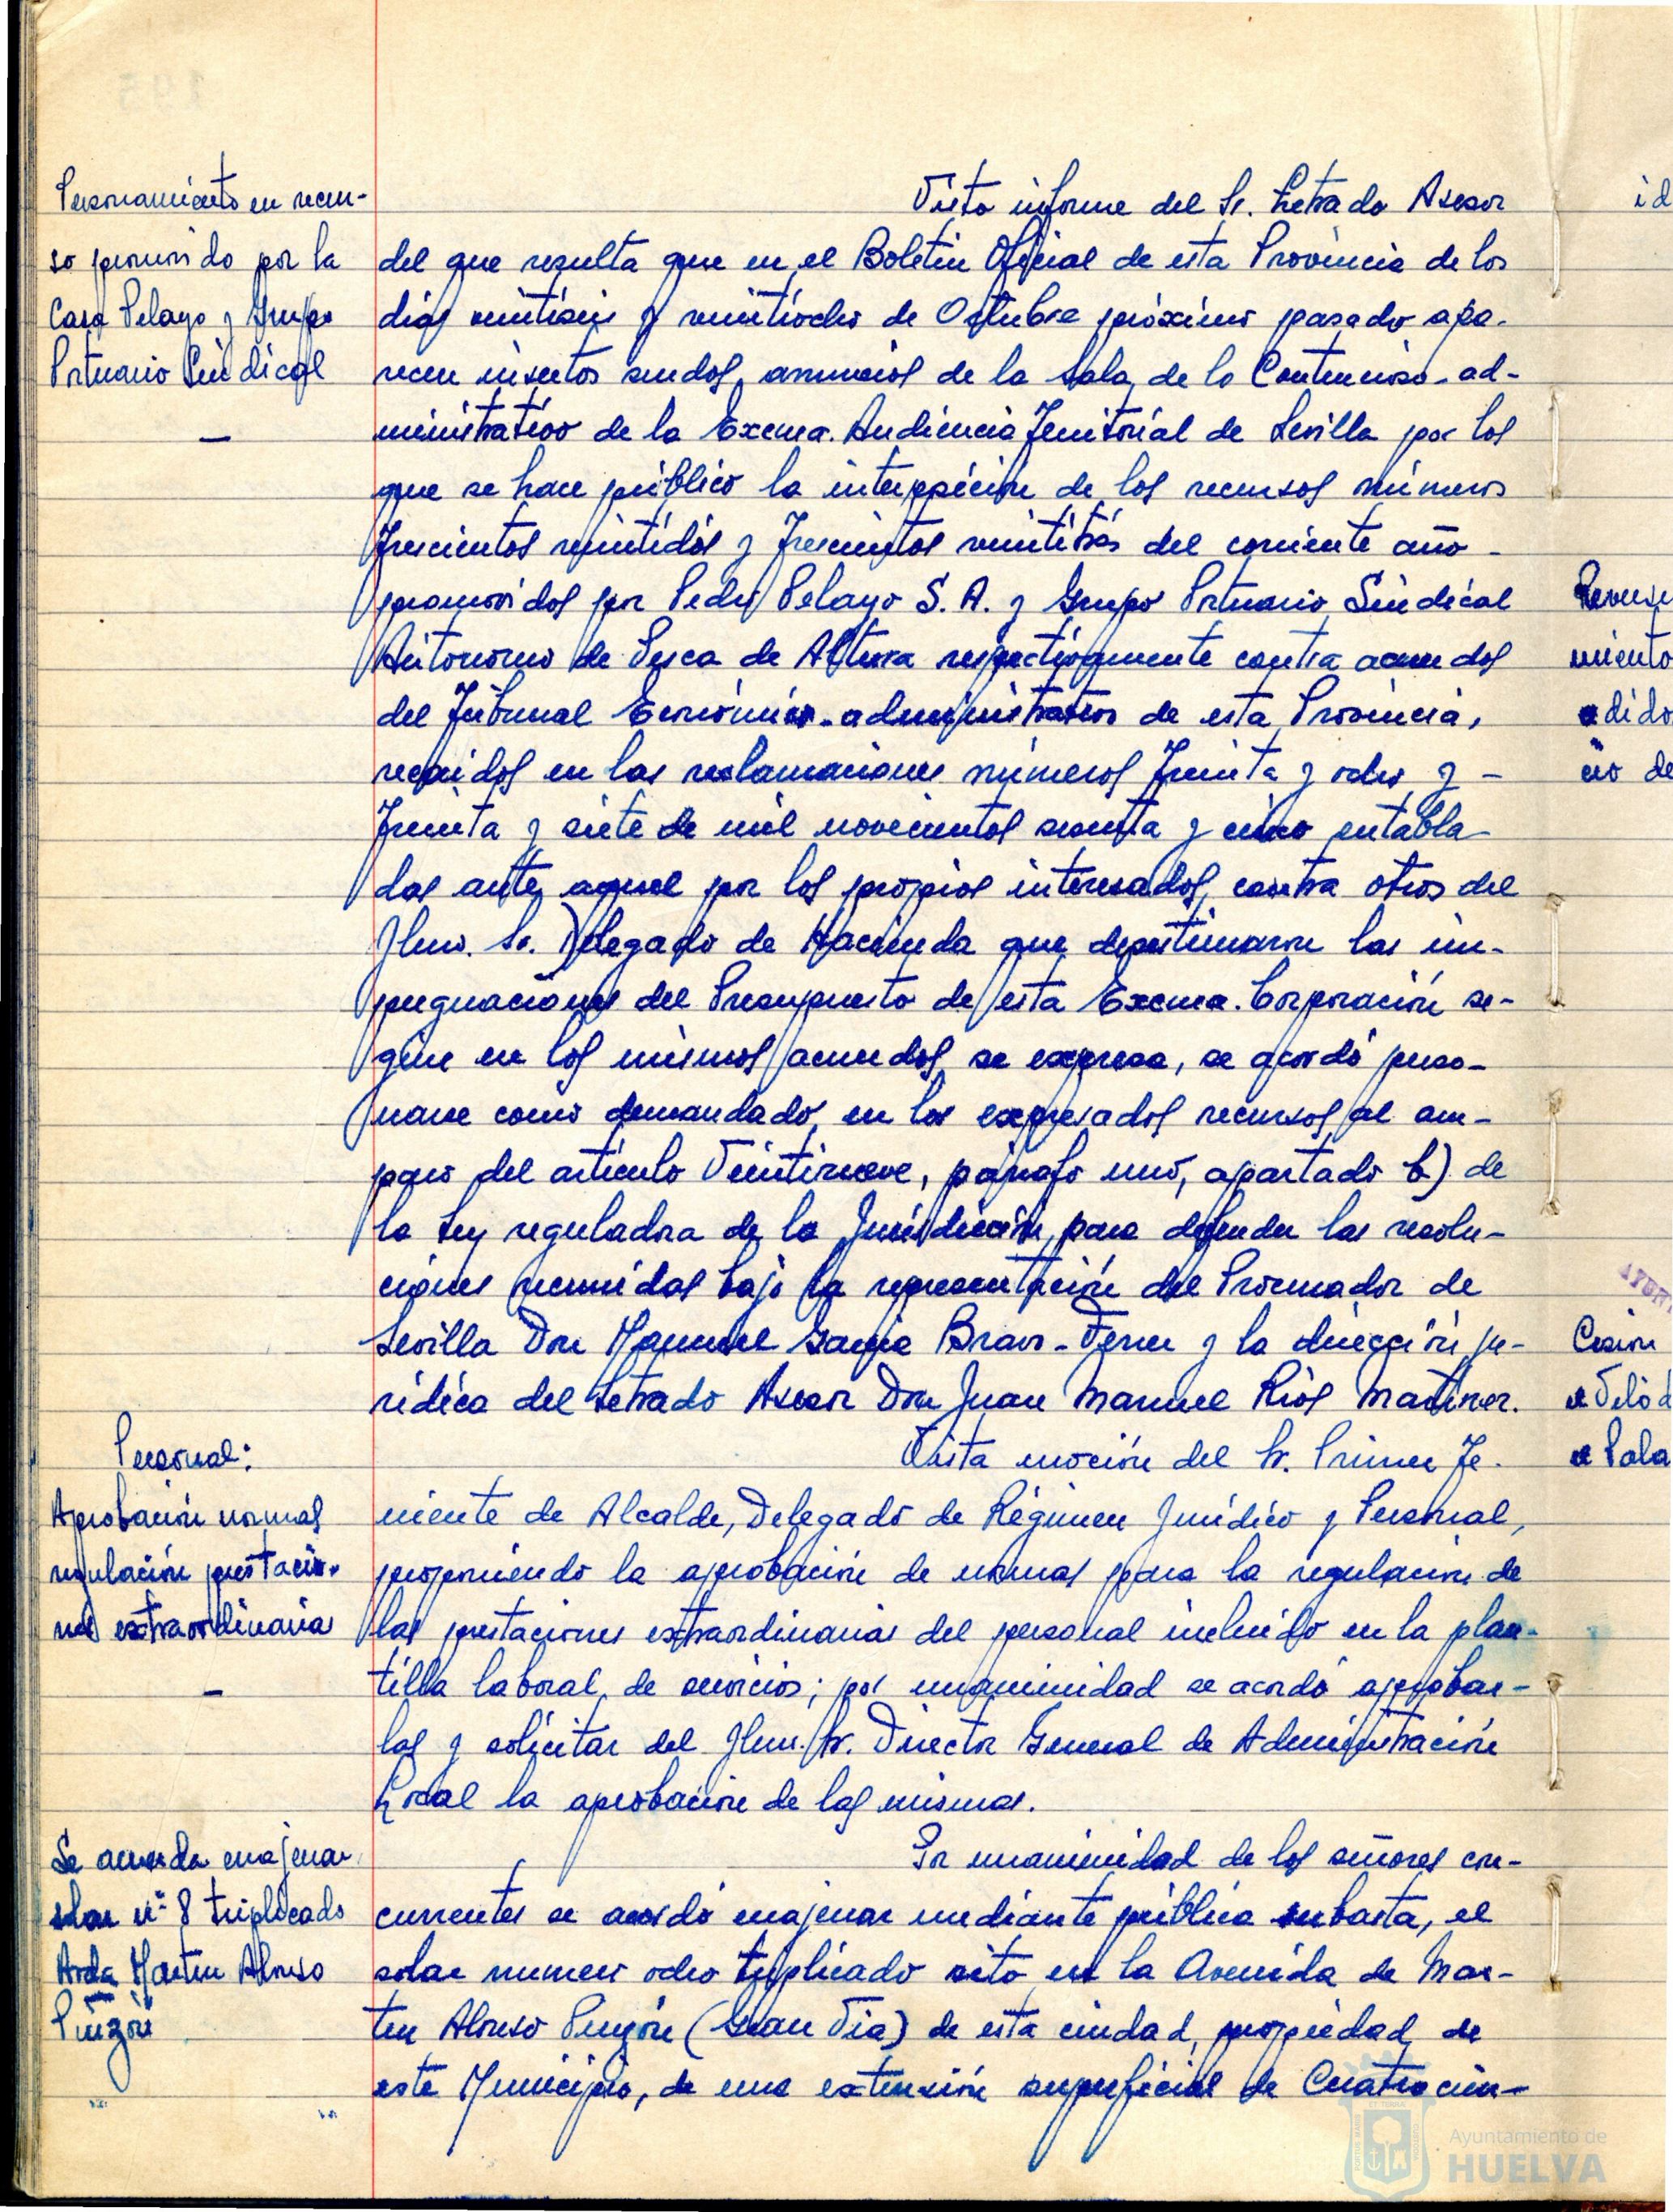 Personamiento en recur-
so promovido por la
Casa Pelayo y Grupo
Portuario Sindical
Visto informe del Sr. Letrado Asesor
del que resulta que en el Boletin Oficial de esta Provincia de los
dias veintiseis y veintiocho de Octubre próximo pasado apa-
recen insertos sendos anuncios de la Sala de lo Contencioso-ad-
ministrativo de la Excma. Audiencia Territorial de Sevilla por los
que se hace público la interposición de los recursos números
trescientos veintidós y trescientos veintitrés del corriente año -
promovidos por Pedro Pelayo S. A. y Grupo Portuario Sindical
Autonomo de Pesca de Altura respectivamente contra acuerdos
del Tribunal Económico-administrativo de esta Provincia,
recaidos en las reclamaciones números treinta y ocho y -
treinta y siete de mil novecientos sesenta y cinco entabla-
das ante aquel por los propios interesados, contra otros del
Ilmo. Sr. Delegado de Hacienda que desestimaron las im-
pugnaciones del Presupuesto de esta Excma. Corporación se-
gún en los mismos acuerdos se expresa, se acordó perso-
narse como demandado en los expresados recursos al am-
paro del artículo Veintinueve, párrafo uno, apartado b) de
la Ley reguladora de la Jurisdicción, para defender las resolu-
ciones recurridas bajo la representación del Procurador de
Sevilla Don Manuel García Bravo-Ferrer y la dirección ju-
rídica del Letrado Asesor Don Juan Manuel Ríos Martinez.
Personal:
Aprobación normas
regulación prestacio-
nes extraordinarias
Vista moción del Sr. Primer Te-
niente de Alcalde, Delegado de Régimen Jurídico y Personal,
proponiendo la aprobación de normas para la regulación de
las prestaciones extraordinarias del personal incluido en la plan-
tilla laboral de servicios; por unanimidad se acordó aprobar-
las y solicitar del Ilmo. Sr. Director General de Administración
Local la aprobación de las mismas.
Se acuerda enajenar
solar nº 8 triplicado
Avda Martin Alonso
Pinzón
Por unanimidad de los señores con-
currentes se acordó enajenar mediante pública subasta, el
solar numero ocho triplicado sito en la Avenida de Mar-
tin Alonso Pinzón (Gran Via) de esta ciudad, propiedad de
este Municipio, de una extensión superficial de Cuatrocien-
id
miento
dido
cio de
Cesion
Pala
Ayuntamiento de
HUELVA